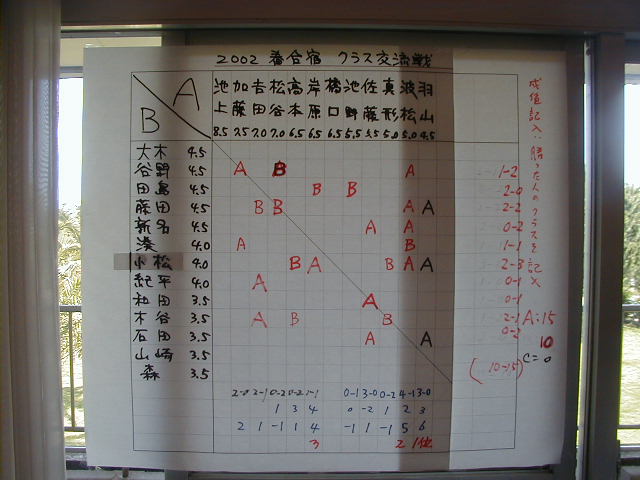 2002 春合宿 クラス交流戦
A
B
池 加 吉 松 高 岸 橋 池 佐 真 波 羽
上 藤 田 谷 本 原 口 野 藤 形 松 山
8.5 7.5 7.0 7.0 6.5 6.5 6.5 5.5 5.5 5.0 5.0 4.5
大木 4.5
谷野 4.5 A B A 1-2
田島 4.5 B B 2-0
藤田 4.5 B B A A 2-2
新名 4.5 A A 0-2
湊 4.0 A B 1-1
小松 4.0 B A B A A 2-3
紀平 4.0 A 0-1
社田 3.5 A 0-1
木谷 3.5 A B B 2-1
石田 3.5 A A 0-2
山崎 3.5
森 3.5
成績記入：勝った人のクラスを記入
A:15
10
C=0
(10-15)
2-0 2-1 0-2 0-2 1-1 0-1 3-0 0-2 4-1 3-0
1 3 4 0 -2 1 2 3
2 1 -1 1 4 -1 1 -1 5 6
3 2 1位